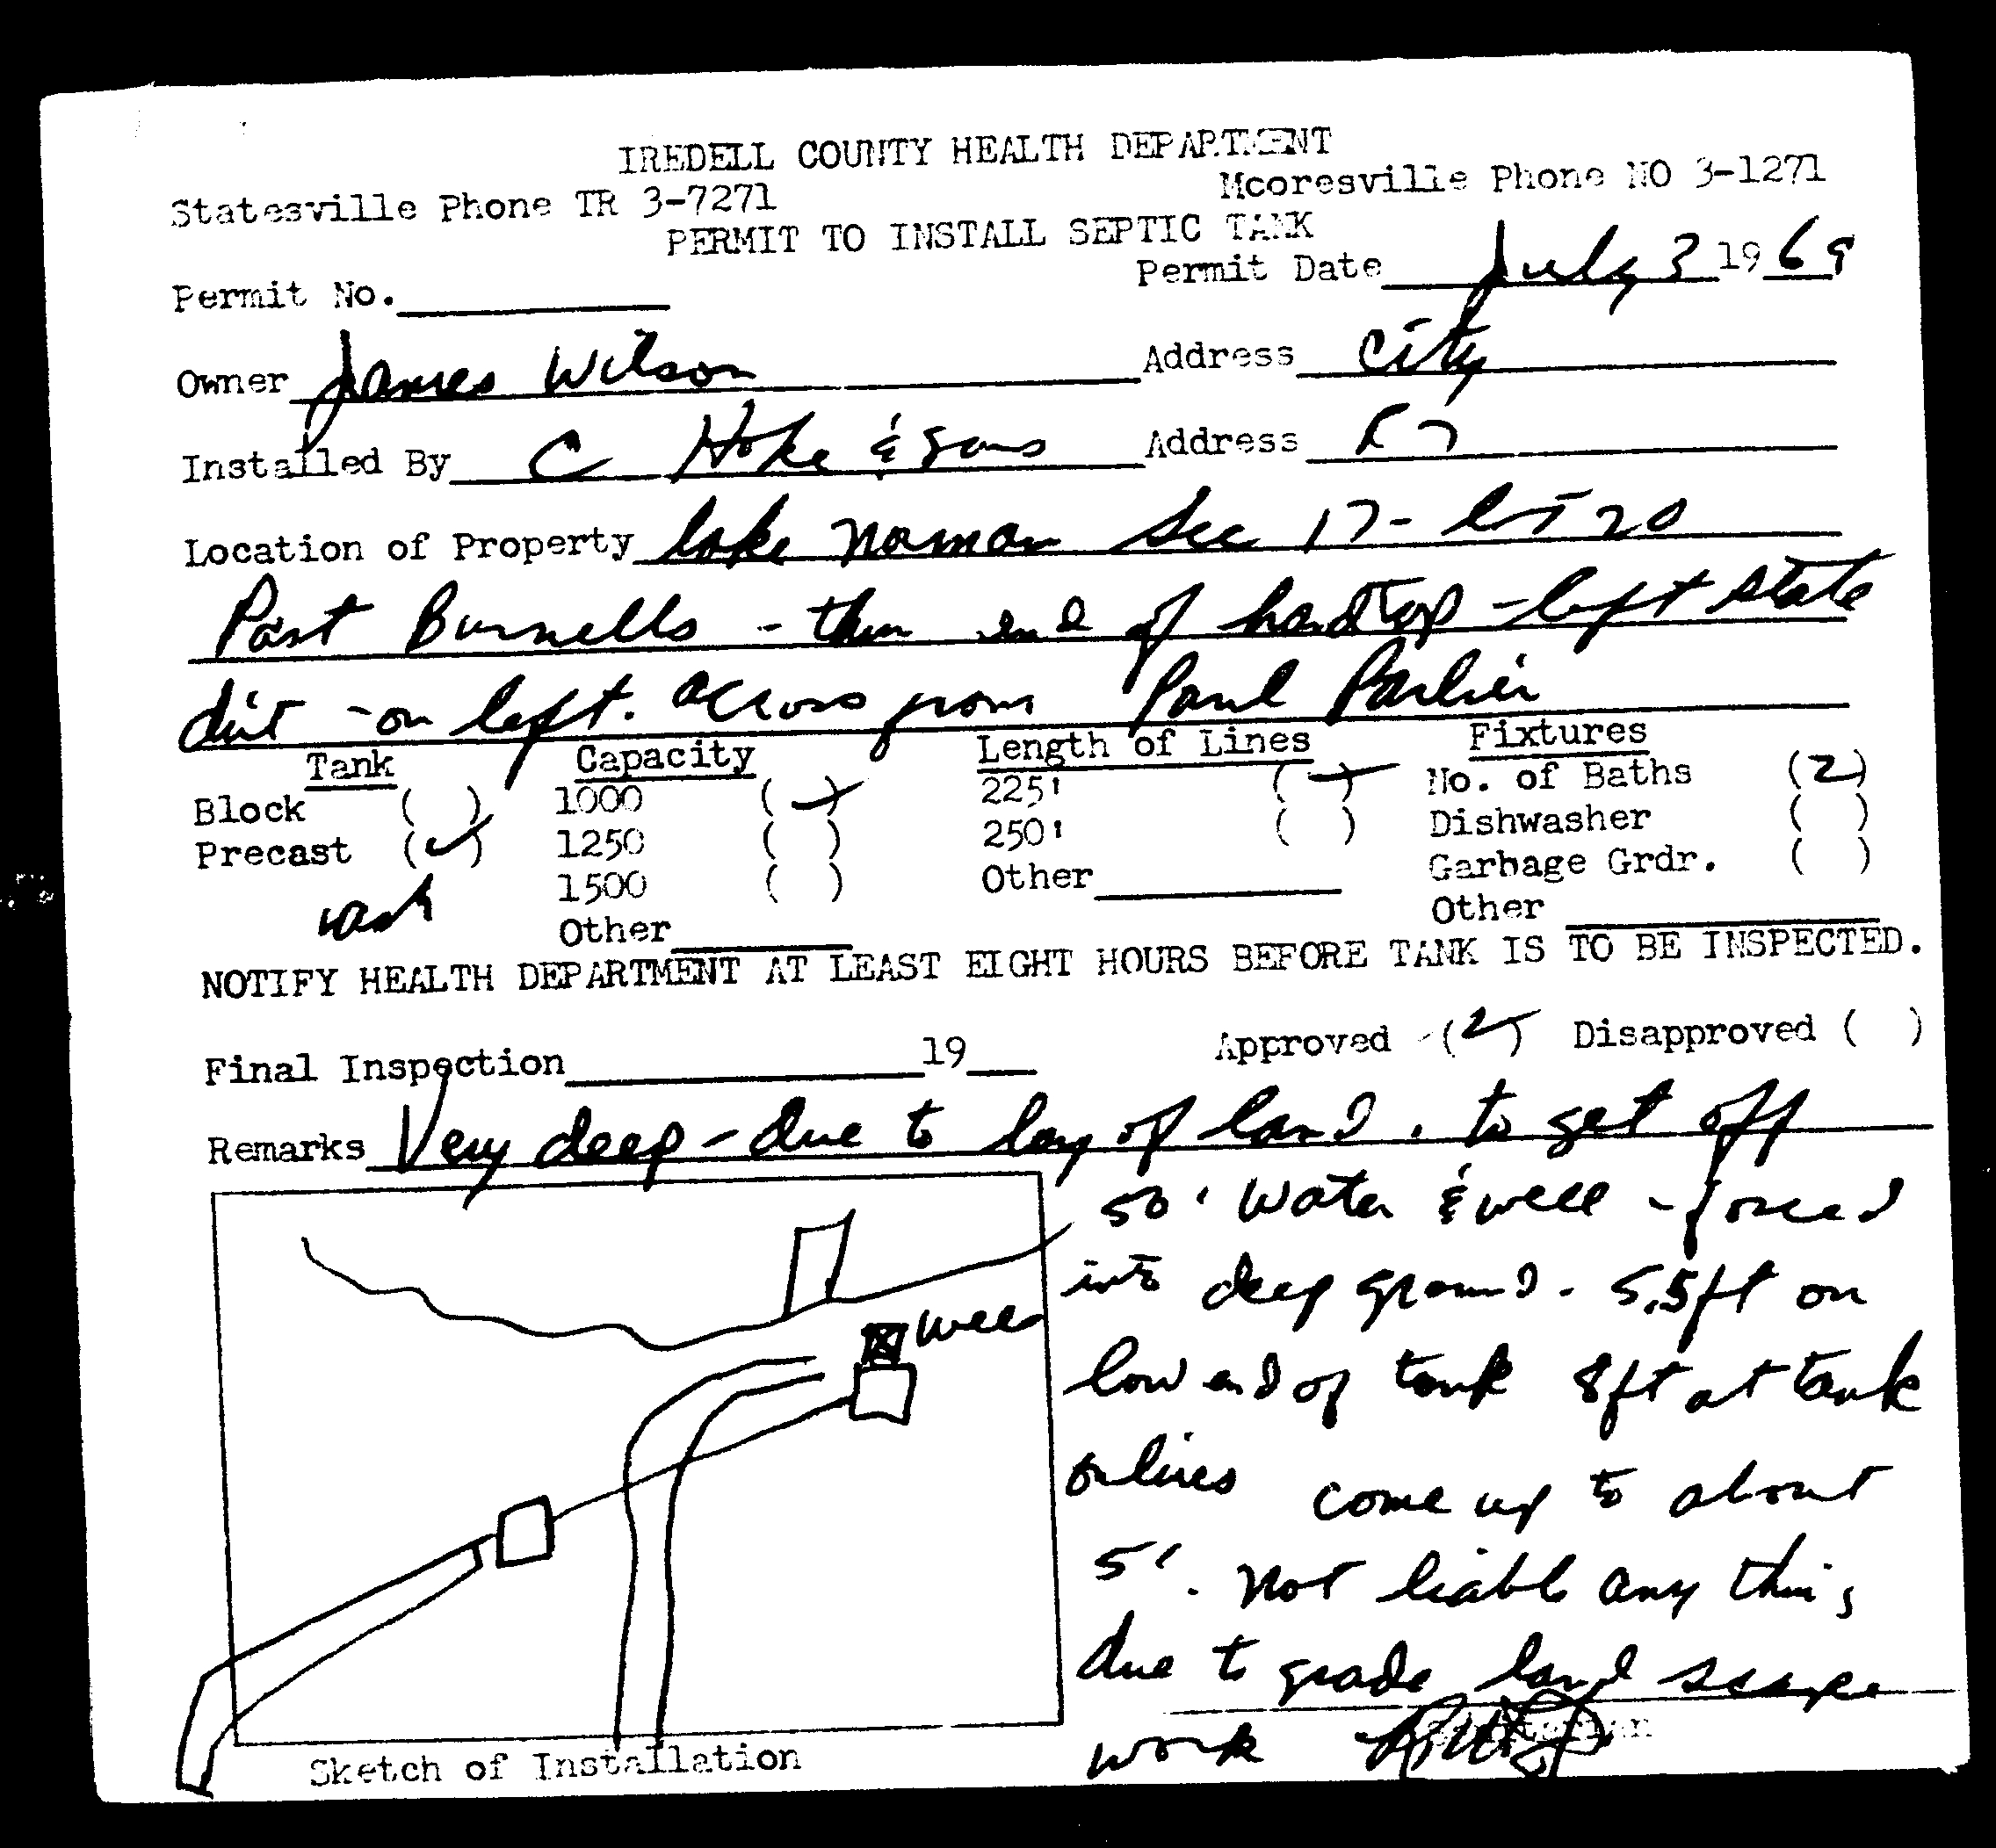 IREDELL COUNTY HEALTH DEPARTMENT
Statesville Phone TR 3-7271 Mooresville Phone NO 3-1271
PERMIT TO INSTALL SEPTIC TANK
Permit No. Permit Date July 3 19 69
Owner James Wilson Address City
Installed By C Hoke & Sons Address R 7
Location of Property Lake Norman Sec 17 - Lot 20
Past Burnells - then end of hardtop - left state
dirt - on left. across from Paul Parlier
Tank Capacity Length of Lines Fixtures
Block ( ) 1000 (✓) 225' (✓) No. of Baths (2)
Precast (✓) 1250 ( ) 250' ( ) Dishwasher ( )
wash 1500 ( ) Other Garbage Grdr. ( )
Other Other
NOTIFY HEALTH DEPARTMENT AT LEAST EIGHT HOURS BEFORE TANK IS TO BE INSPECTED.
Final Inspection 19 Approved (✓) Disapproved ( )
Remarks Very deep - due to lay of land. to get off
50' water & well - forced
into deep ground. 5.5ft on
low end of tank 8ft at tank
on lines come up to about
5'. Not liable any thing
due to grade land scape
work
Sanitarian
well
Sketch of Installation